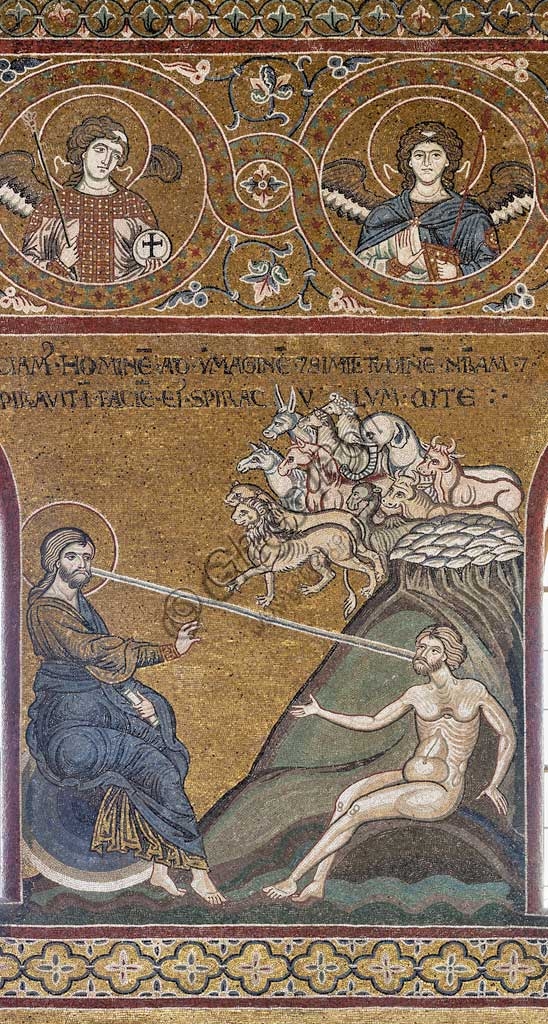 CIAM · HOMINĒ · AD · YMAGINĒ · 7 SIMILITUDINĒ · NRAM · 7 ·
PIRAVIT · I · FACIĒ · EI · SPIRACVLUM · VITE :·